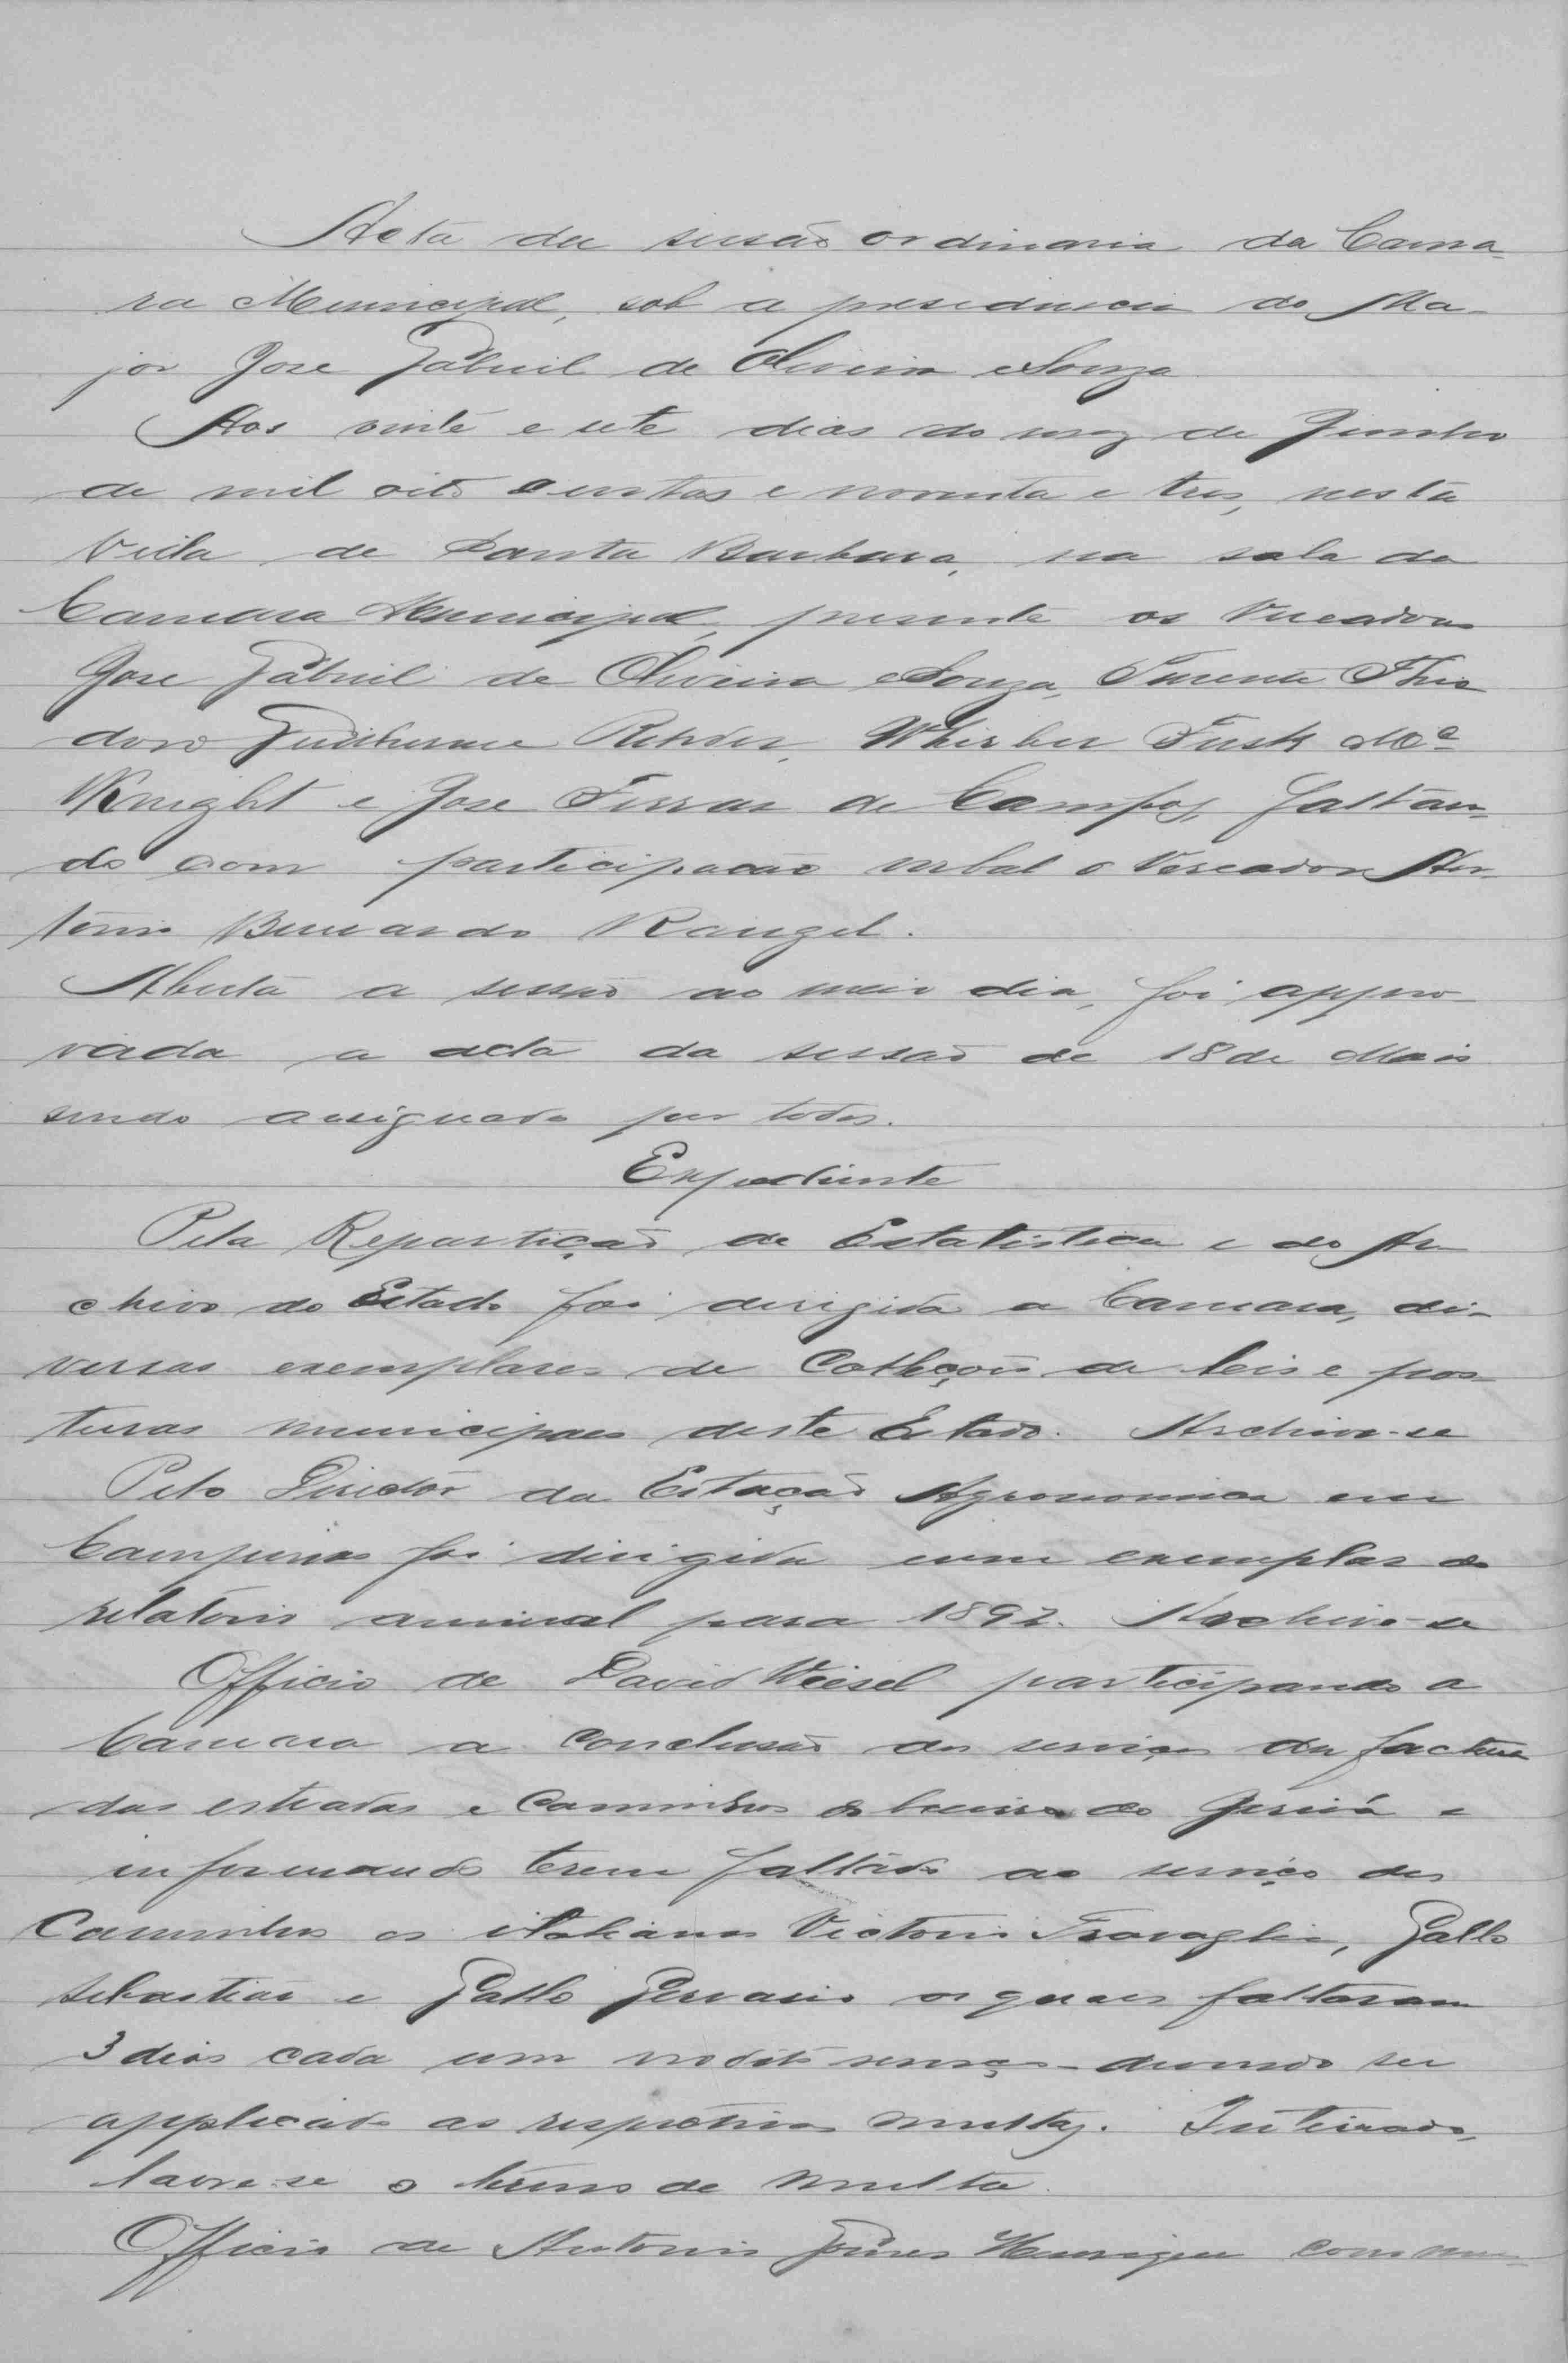 Acta da sessão ordinaria da Cama-
ra Municipal, sob a presidencia do Ma-
jor Jose Gabriel de Oliveira e Souza
Aos vinte e sete dias do mez de Junho
de mil oito centos e noventa e tres, nesta
Villa de Santa Barbara, na sala da
Camara Municipal, presente os Vereadores
Jose Gabriel de Oliveira e Souza, Tenente Theo
doro Guilherme Rehder, Whirber Fusk Mc
Knight e Jose Ferraz de Campos, faltan-
do com participação verbal o Vereador An-
tonio Bernardo Rangel.
Aberta a sessão ao meio dia, foi appro-
vada a acta da sessão de 18 de Maio
sendo assignada por todos.
Expediente
Pela Repartição de Estatistica e do Ar
chivo do Estado foi dirigida a Camara, di-
versas exemplares de Collecções de leis e pos-
turas municipaes deste Estado. Archive-se
Pelo Director da Estação Agronomica em
Campinas foi dirigida um exemplar do
relatorio annual para 1892. Archive-se
Officio de David Weisel participando a
Camara a conclusão dos serviços da factura
das estradas e caminhos do bairro do e
informando terem faltado ao serviço dos
Caminhos os italianos Victorio Travaglia, Gallo
Sebastião e Gallo Gervasio os quaes faltaram
3 dias cada um no dito serviço - devendo ser
applicado as respectivas multas. Inteirado,
lavre-se o termo de multa.
Officio de Antonio Gomes Henrique commu-